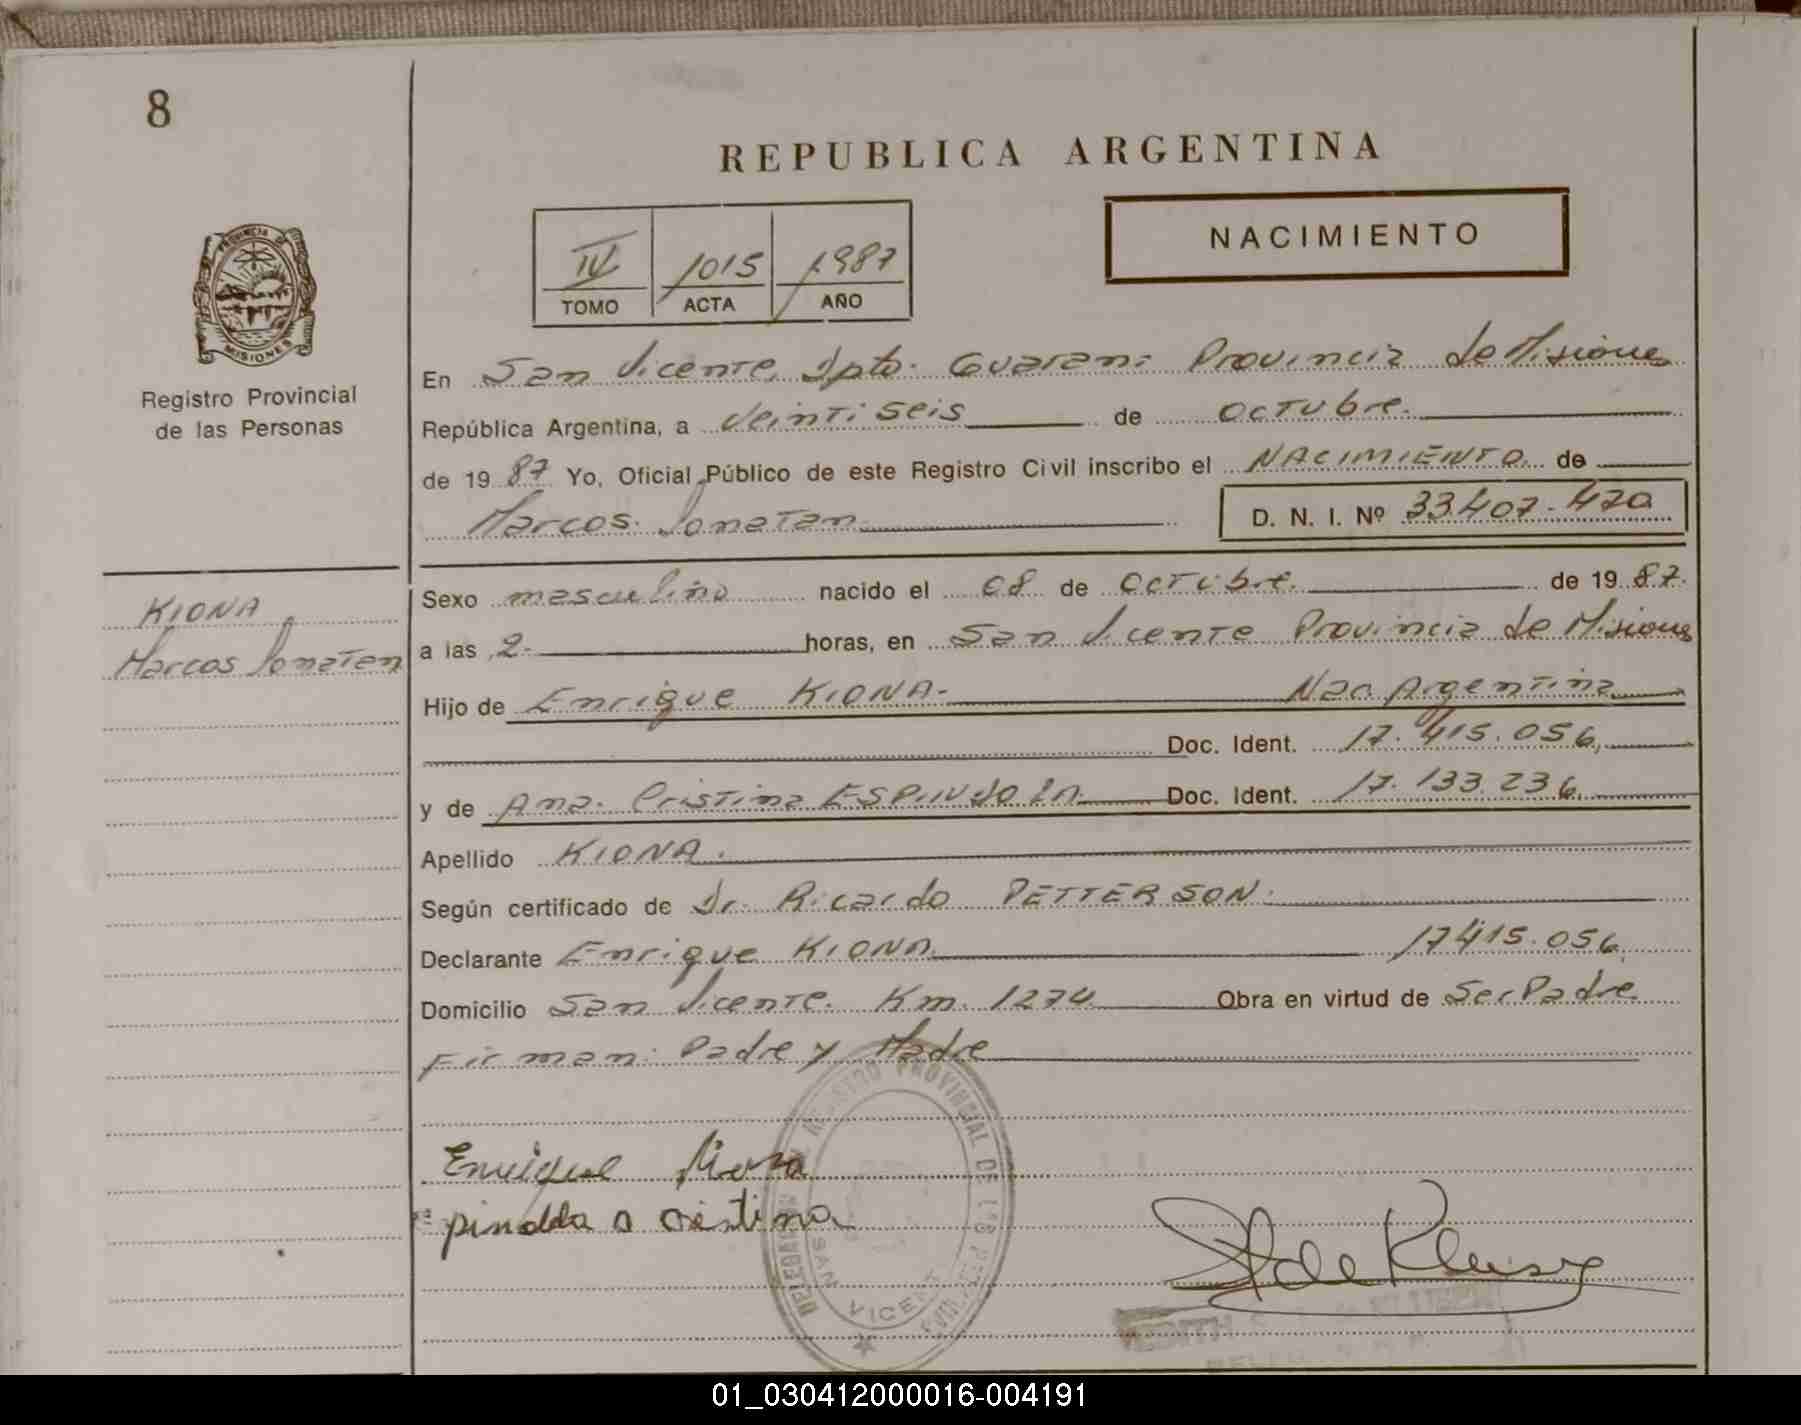 8
REPUBLICA ARGENTINA
NACIMIENTO
IV 1015 1987
TOMO ACTA AÑO
PROVINCIA DE
MISIONES
Registro Provincial
de las Personas
En San Vicente, Dpto. Guarani Provincia de Misiones
República Argentina, a veintiseis de octubre.
de 1987 Yo, Oficial Público de este Registro Civil inscribo el NACIMIENTO de
Marcos Jonatan D. N. I. Nº 33.407.420
KIONA
Marcos Jonatan
Sexo masculino nacido el 08 de octubre. de 1987.
a las 2. horas, en San Vicente Provincia de Misiones
Hijo de Enrique KIONA. Nac. Argentina
Doc. Ident. 17.415.056,
y de Ana Cristina ESPINDOLA Doc. Ident. 17.133.236.
Apellido KIONA.
Según certificado de Dr. Ricardo PETTERSON.
Declarante Enrique KIONA 17415.056
Domicilio San Vicente. Km. 1274 Obra en virtud de Ser Padre
Firman: Padre y Madre
Enrique Kiona
pindola a cristina
REGISTRO PROVINCIAL DE LAS
DELEGACION
SAN VICENTE
01_030412000016-004191